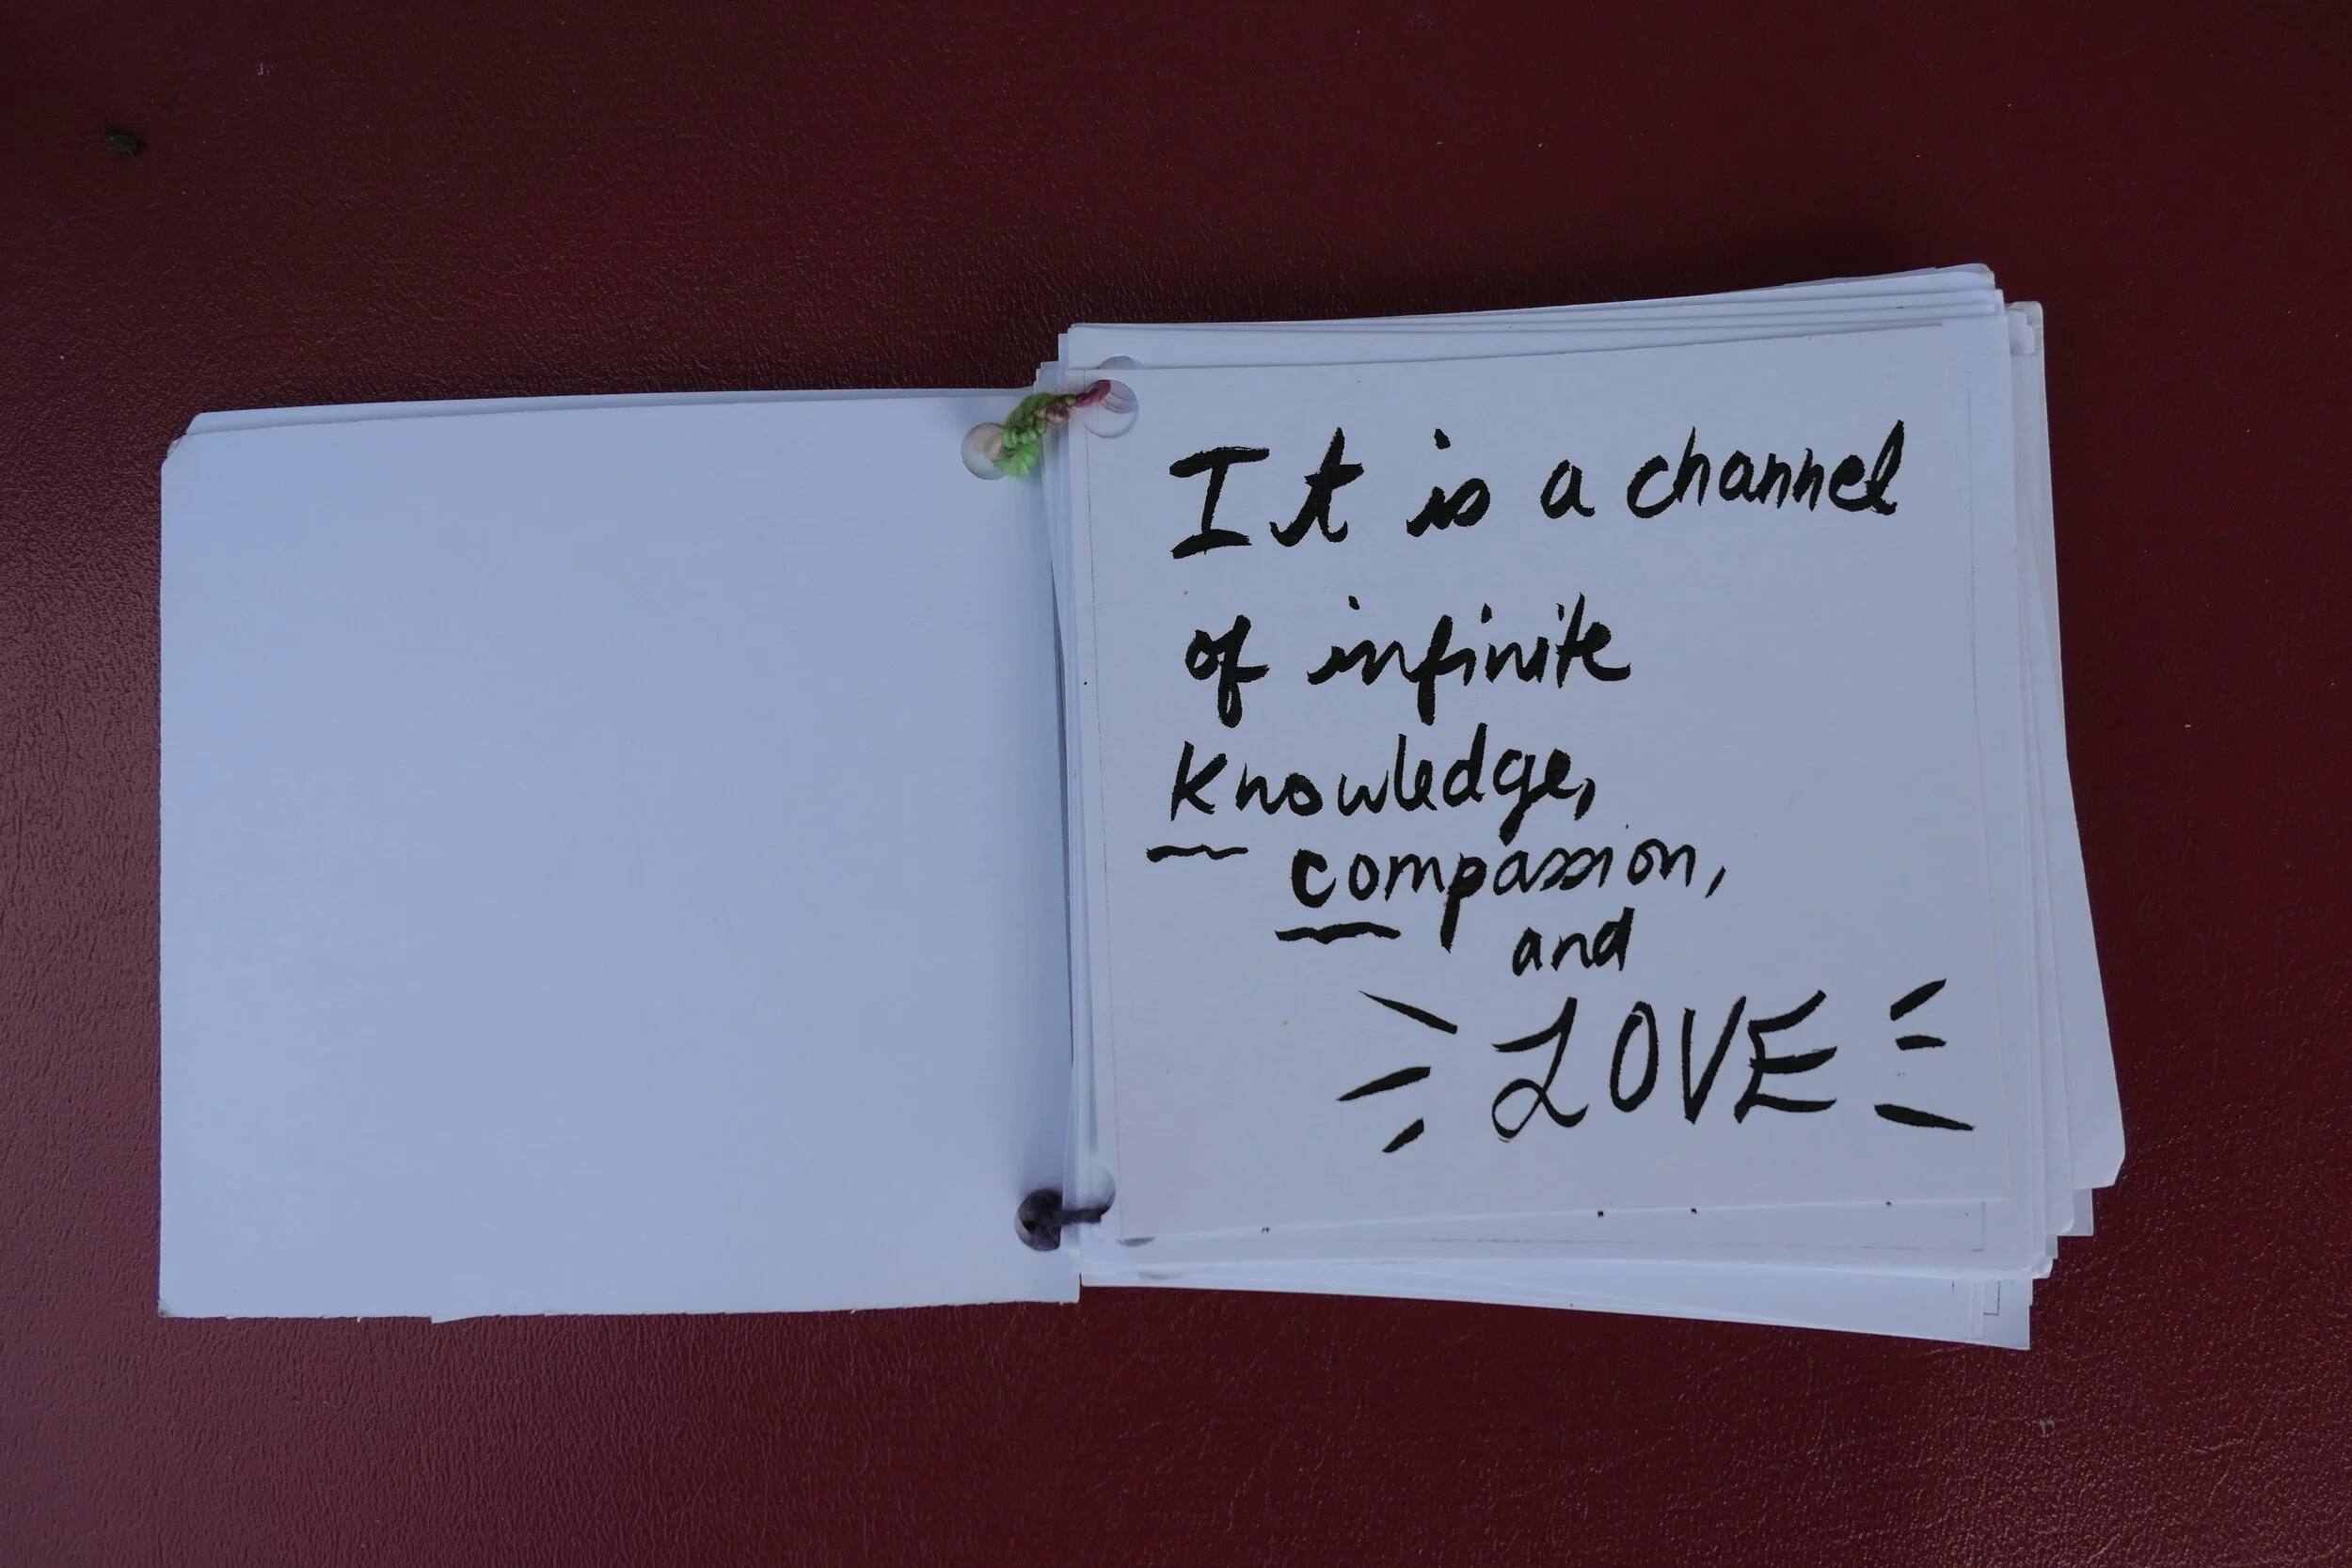 It is a channel
of infinite
Knowledge,
compassion,
and
LOVE